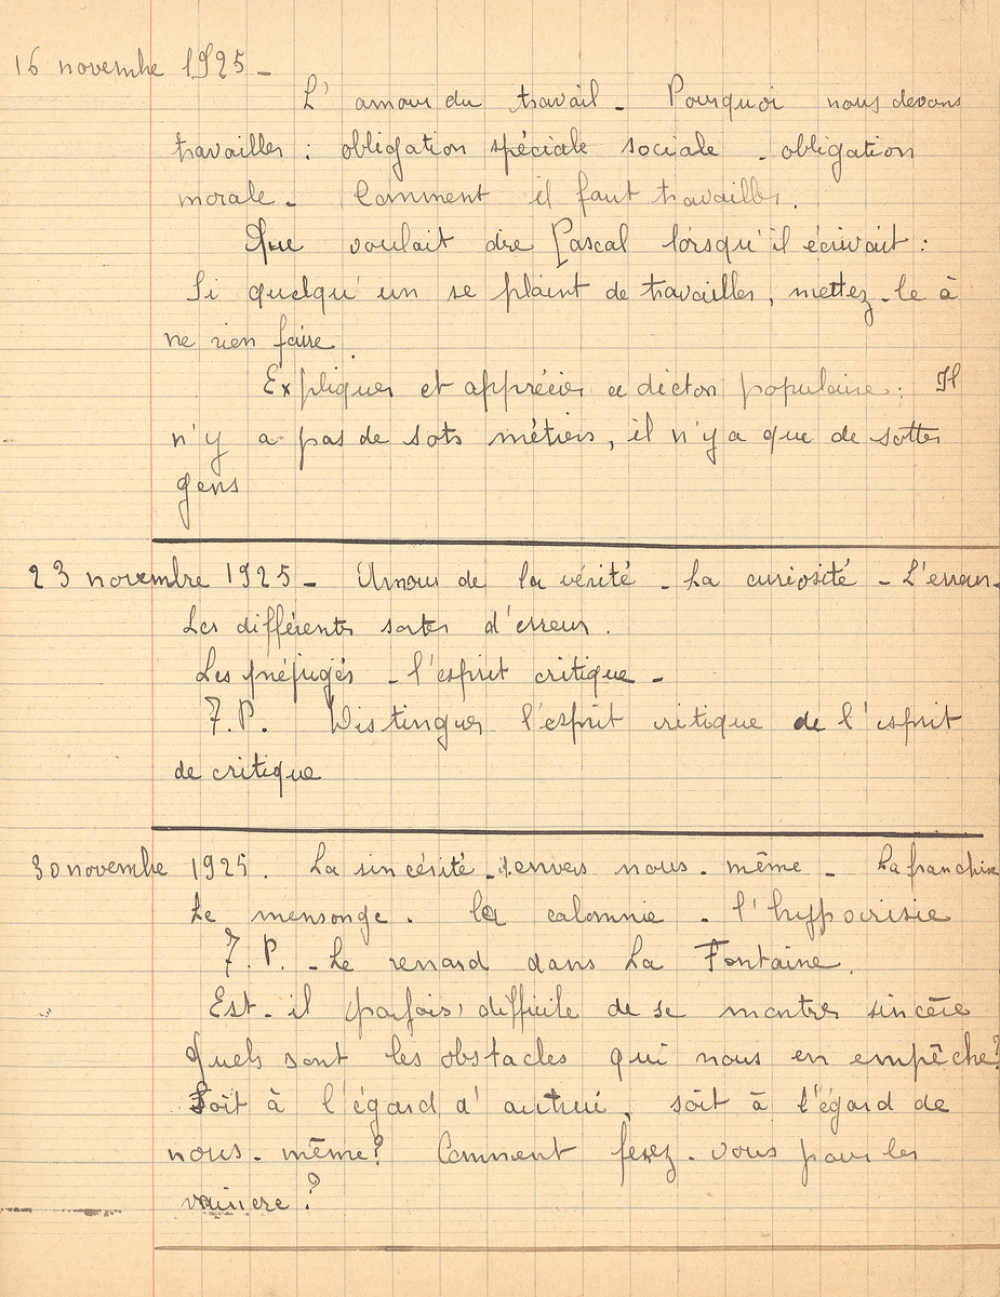 16 novembre 1925 -
L'amour du travail - Pourquoi nous devons
travailler : obligation spéciale sociale - obligation
morale - Comment il faut travailler.
Que voulait dire Pascal lorsqu'il écrivait :
Si quelqu'un se plaint de travailler, mettez-le à
ne rien faire.
Expliquer et apprécier ce dicton populaire : Il
n'y a pas de sots métiers, il n'y a que de sottes
gens
23 novembre 1925 - Amour de la vérité - La curiosité - L'erreur -
Les différents sortes d'erreur.
Les préjugés - l'esprit critique -
7.P. Distinguer l'esprit critique de l'esprit
de critique
30 novembre 1925. La sincérité - envers nous-même - La franchise
Le mensonge. la calomnie - l'hyppocrisie
7.P. - Le renard dans La Fontaine.
Est-il parfois difficile de se montrer sincère
Quels sont les obstacles qui nous en empêche?
Soit à l'égard d'autrui, soit à l'égard de
nous-même? Comment ferez-vous pour les
vaincre ?